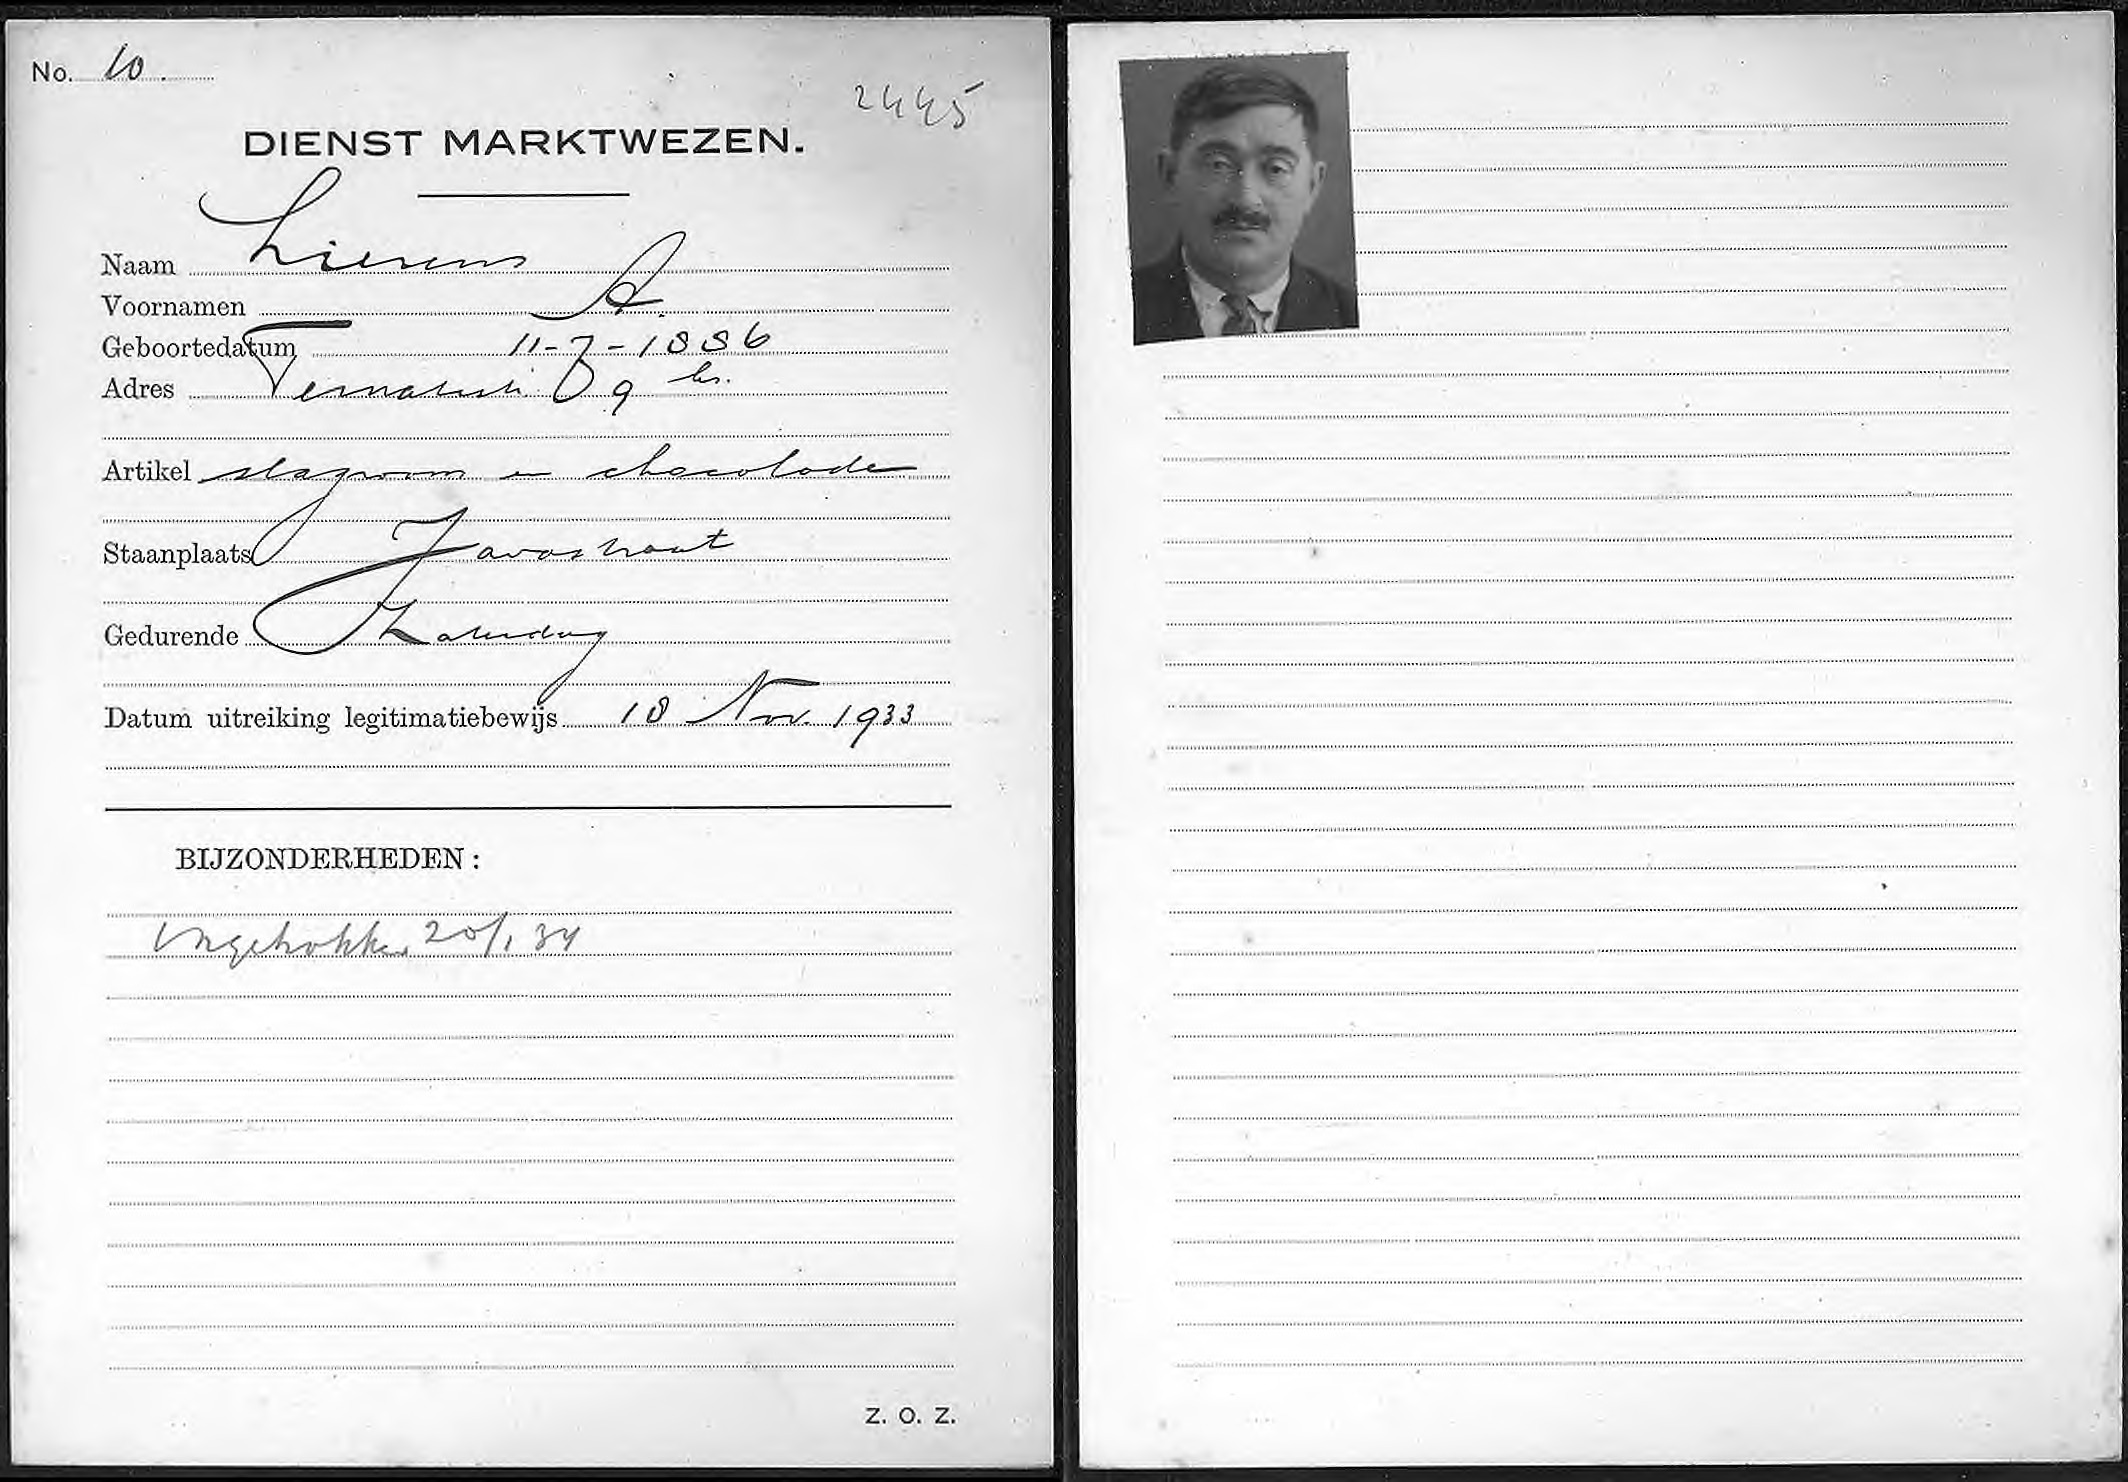 No. 10.
2445
DIENST MARKTWEZEN.
Naam Lierens
Voornamen A.
Geboortedatum 11-7-1886
Adres Ternatestr. 9 hs.
Artikel slagroom en chocolade
Staanplaats Javastraat
Gedurende Zaterdag
Datum uitreiking legitimatiebewijs 18 Nov. 1933
BIJZONDERHEDEN:
Ingetrokken 20/1 34
Z. O. Z.